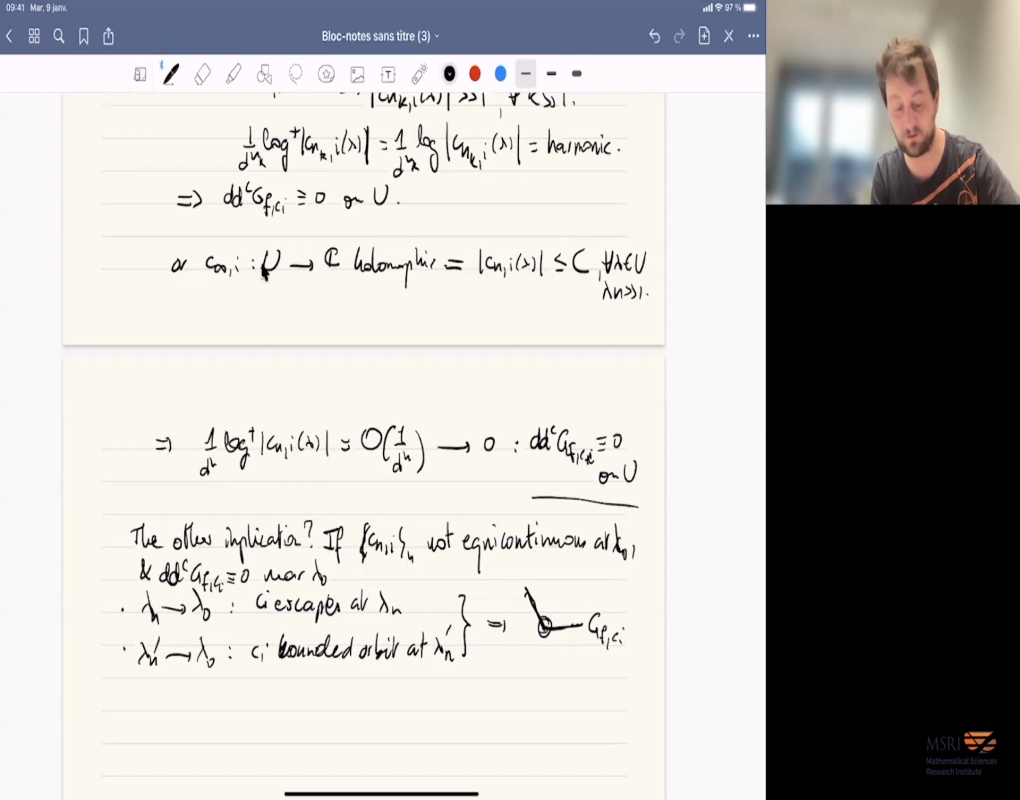 09:41 Mar. 9 janv.
97 %
Bloc-notes sans titre (3)
|c_{n_k,i}(λ)| >> 1, ∀ k >> 1.
1/d^{n_k} log⁺|c_{n_k,i}(λ)| = 1/d^{n_k} log |c_{n_k,i}(λ)| = harmonic.
=> dd^c G_{f,c_i} ≡ 0 on U.
or c_{∞,i} : U → ℂ holomorphic = |c_{n,i}(λ)| ≤ C, ∀λ∈U
λ n>>1.
=> 1/d^n log⁺|c_{n,i}(λ)| = O(1/d^n) → 0 : dd^c G_{f,c_i} ≡ 0
on U
The other implication? If {c_{n,i}}_n not equicontinuous at λ_0,
& dd^c G_{f,c_i} ≡ 0 near λ_0
· λ_n → λ_0 : c_i escapes at λ_n
=> G_{f,c_i}
· λ'_n → λ_0 : c_i bounded orbit at λ'_n
MSRI
Mathematical Sciences
Research Institute